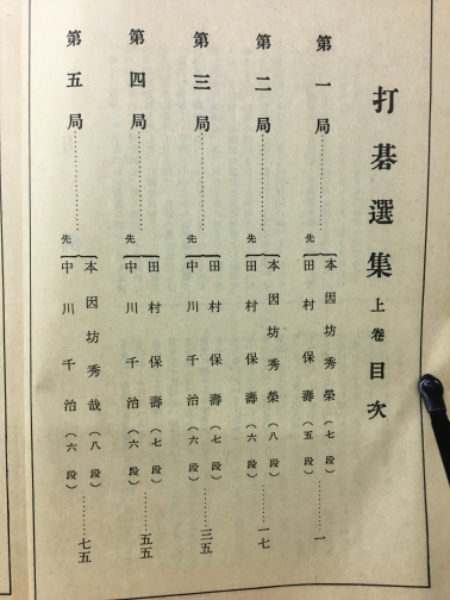 打碁選集上卷目次
第一局………………
本因坊秀榮(七段)
先 田村保壽(五段)
………一
第二局………………
本因坊秀榮(八段)
先 田村保壽(六段)
………一七
第三局………………
田村保壽(七段)
先 中川千治(六段)
………三五
第四局………………
田村保壽(七段)
先 中川千治(六段)
………五五
第五局………………
本因坊秀哉(八段)
先 中川千治(六段)
………七五